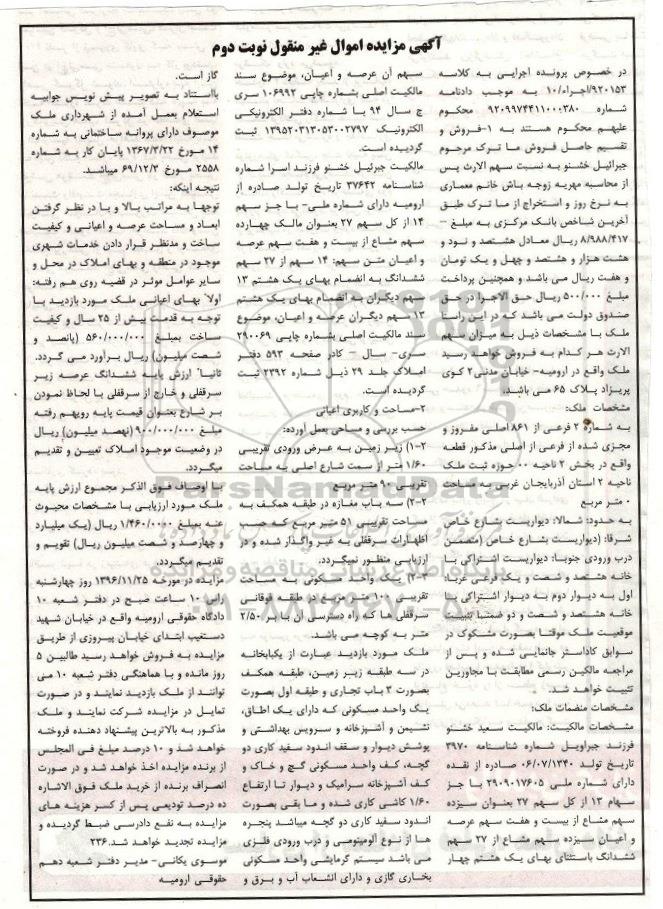 آگهی مزایده اموال غیر منقول نوبت دوم
در خصوص پرونده اجرایی به کلاسه
۹۲۰۱۵۳/اجراء/۱۰ به موجب دادنامه
شماره ۹۲۰۹۹۷۴۴۱۱۰۰۰۳۸۰ محکوم
علیهم محکوم هستند به ۱-فروش و
تقسیم حاصل فروش ما ترک مرحوم
جبرائیل خشنو به نسبت سهم الارث پس
از محاسبه مهریه زوجه باش خانم معماری
به نرخ روز و استخراج از ما ترک طبق
آخرین شاخص بانک مرکزی به مبلغ –
۸/۹۸۸/۴۱۷ ریال معادل هشتصد و نود و
هشت هزار و هشتصد و چهل و یک تومان
و هفت ریال می باشد و همچنین پرداخت
مبلغ ۵۰۰/۰۰۰ ریال حق الاجرا در حق
صندوق دولت می باشد که در این راستا
ملک با مشخصات ذیل به میزان سهم
الارث هر کدام به فروش خواهد رسید
ملک واقع در ارومیه– خیابان مدنی۲ کوی
پریزاد پلاک ۶۵ می باشد.
مشخصات ملک:
به شماره ۲ فرعی از ۸۶۱ اصلی مفروز و
مجزی شده از فرعی از اصلی مذکور قطعه
واقع در بخش ۲ ناحیه ۰۰ حوزه ثبت ملک
ناحیه ۲ استان آذربایجان غربی به مساحت
۰ متر مربع
به حدود: شمالا: دیواریست بشارع خاص
شرقا: (دیواریست بشارع خاص (متضمن
درب ورودی جنوبا: دیواریست اشتراکی با
خانه هشتصد و شصت و یک فرعی غربا:
اول به دیوار دوم به دیوار اشتراکی با
خانه هشتصد و شصت و دو ضمنا تثبیت
موقعیت ملک موقتا بصورت مشکوک در
سوابق کاداستر جانمایی شده و پس از
مراجعه مالکین رسمی مطابقت با مجاورین
تثبیت خواهد شد.
مشخصات منضمات ملک:
مشخصات مالکیت: مالکیت سعید خشنو
فرزند جبراویل شماره شناسنامه ۳۹۷۰
تاریخ تولد ۰۶/۰۷/۱۳۴۰ صادره از نقده
دارای شماره ملی ۲۹۰۹۰۱۷۶۰۵ با جز
سهام ۱۳ از کل سهم ۲۷ بعنوان سیزده
سهم مشاع از بیست و هفت سهم عرصه
و اعیان سیزده سهم مشاع از ۲۷ سهم
ششدانگ باستثنای بهای یک هشتم چهار
سهم آن عرصه و اعیان، موضوع سند
مالکیت اصلی بشماره چاپی ۱۰۶۹۹۲ سری
ج سال ۹۴ با شماره دفتر الکترونیکی
الکترونیک ۱۳۹۵۲۰۳۱۳۰۵۳۰۰۲۷۹۷ ثبت
گردیده است.
مالکیت جبرئیل خشنو فرزند اسرا شماره
شناسنامه ۳۷۶۴۲ تاریخ تولد صادره از
ارومیه دارای شماره ملی- با جز سهم
۱۴ از کل سهم ۲۷ بعنوان مالک چهارده
سهم مشاع از بیست و هفت سهم عرصه
و اعیان متن سهم: ۱۴ سهم از ۲۷ سهم
ششدانگ به انضمام بهای یک هشتم ۱۳
سهم دیگران به انضمام بهای یک هشتم
۱۳ سهم دیگران عرصه و اعیان، موضوع
سند مالکیت اصلی بشماره چاپی ۲۹۰۰۶۹
سری– سال – کادر صفحه ۵۹۳ دفتر
املاک جلد ۲۹ ذیل شماره ۲۳۹۲ ثبت
گردیده است.
۲-مساحت و کاربری اعیانی
حسب بررسی و مساحی بعمل آورده:
۲-۱) زیر زمین به عرض ورودی تقریبی
۱/۶۰ متر از سمت شارع اصلی به مساحت
تقریبی ۹۰ متر مربع
۲-۲) سه باب مغازه در طبقه همکف به
مساحت تقریبی ۵۱ متر مربع که حسب
اظهارات سرقفلی به غیر واگذار شده و در
ارزیابی منظور نمیگردد.
۲-۳) یک واحد مسکونی به مساحت
تقریبی ۱۰۰ متر مربع در طبقه فوقانی
سرقفلی ها که راه دسترسی آن با بر ۲/۵۰
متر به کوچه می باشد.
ملک مورد بازدید عبارت از یکبابخانه
در سه طبقه زیر زمین، طبقه همکف
بصورت ۳ باب تجاری و طبقه اول بصورت
یک واحد مسکونی که دارای یک اطاق،
نشیمن و آشپزخانه و سرویس بهداشتی و
پوشش دیوار و سقف اندود سفید کاری دو
گچه، کف واحد مسکونی گچ و خاک و
کف آشپزخانه سرامیک و دیوار تا ارتفاع
۱/۶۰ کاشی کاری شده و ما بقی بصورت
اندود سفید کاری دو گچه میباشد پنجره
ها از نوع آلومینومی و درب ورودی فلزی
می باشد سیستم گرمایشی واحد مسکونی
بخاری گازی و دارای انشعاب آب و برق و
گاز است.
بااستناد به تصویر پیش نویس جوابیه
استعلام بعمل آمده از شهرداری ملک
موصوف دارای پروانه ساختمانی به شماره
۱۴ مورخ ۱۳۶۷/۳/۲۲ پایان کار به شماره
۲۵۵۸ مورخ ۶۹/۱۲/۳ میباشد.
نتیجه اینکه:
توجها به مراتب بالا و با در نظر گرفتن
ابعاد و مساحت عرصه و اعیانی و کیفیت
ساخت و مدنظر قرار دادن خدمات شهری
موجود در منطقه و بهای املاک در محل و
سایر عوامل موثر در قضیه روی هم رفته:
اولا" بهای اعیانی ملک مورد بازدید با
توجه به قدمت بیش از ۲۵ سال و کیفیت
ساخت بمبلغ ۵۶۰/۰۰۰/۰۰۰ (پانصد و
شصت میلیون) ریال براورد می گردد.
ثانیا" ارزش پایه ششدانگ عرصه زیر
سرقفلی و خارج از سرقفلی با لحاظ نمودن
بر شارع بعنوان قیمت پایه رویهم رفته
مبلغ ۹۰۰/۰۰۰/۰۰۰ (نهصد میلیون) ریال
در وضعیت موجود املاک تعیین و تقدیم
میگردد.
با اوصاف فوق الذکر مجموع ارزش پایه
ملک مورد ارزیابی با مشخصات مبحوث
عنه بمبلغ ۱/۴۶۰/۰۰۰ ریال (یک میلیارد
و چهارصد و شصت میلیون ریال) تقویم و
تقدیم میگردد.
مزایده در مورخه ۱۳۹۶/۱۱/۲۵ روز چهارشنبه
راس ۱۰ ساعت صبح در دفتر شعبه ۱۰
دادگاه حقوقی ارومیه واقع در خیابان شهید
دستغیب ابتدای خیابان پیروزی از طریق
مزایده به فروش خواهد رسید طالبین ۵
روز مانده و با هماهنگی دفتر شعبه ۱۰ می
توانند از ملک بازدید نمایند و در صورت
تمایل در مزایده شرکت نمایند و ملک
مذکور به بالاترین پیشنهاد دهنده فروخته
خواهد شد و ۱۰ درصد مبلغ فی المجلس
از برنده مزایده اخذ خواهد شد و در صورت
انصراف برنده از خرید ملک فوق الاشاره
ده درصد تودیعی پس از کسر هزینه های
مزایده به نفع دادرسی ضبط گردیده و
مزایده تجدید خواهد شد. ۲۳۶
موسوی یکانی- مدیر دفتر شعبه دهم
حقوقی ارومیه
ParsNamadData
پایگاه اطلاع رسانی مناقصه و مزایده
۰۲۱-۸۸۳۴۹۶۷۰-۵